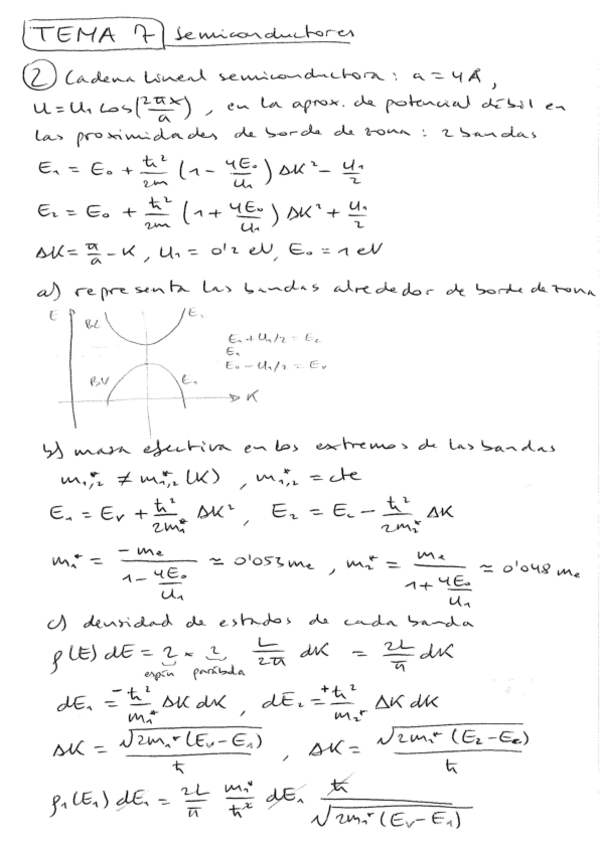 TEMA 7 semiconductores
② Cadena lineal semiconductora: a = 4Å,
U = U₁ cos(2πx/a), en la aprox. de potencial débil en
las proximidades de borde de zona: 2 bandas
E₁ = E₀ + ħ²/2m (1 - 4E₀/U₁) ΔK² - U₁/2
E₂ = E₀ + ħ²/2m (1 + 4E₀/U₁) ΔK² + U₁/2
ΔK = π/a - K, U₁ = 0'2 eV, E₀ = 1 eV
a) representa las bandas alrededor de borde de zona
E BC E₂
E₀ + U₁/2 = Ec
E₀
E₀ - U₁/2 = Ev
BV E₁
K
b) masa efectiva en los extremos de las bandas
m*₁,₂ ≠ m*₁,₂ (K), m*₁,₂ = cte
E₁ = Ev + ħ²/2m₁* ΔK², E₂ = Ec - ħ²/2m₂* ΔK
m₁* = -me/(1 - 4E₀/U₁) ≃ 0'053 me, m₂* = me/(1 + 4E₀/U₁) ≃ 0'048 me
c) densidad de estados de cada banda
ρ(E) dE = 2 × 2 L/2π dK = 2L/π dK
espín parábola
dE₁ = -ħ²/m₁* ΔK dK, dE₂ = +ħ²/m₂* ΔK dK
ΔK = √(2m₁*(Ev - E₁))/ħ, ΔK = √(2m₁*(E₂ - Ec))/ħ
ρ₁(E₁) dE₁ = 2L/π m₁*/ħ² dE₁ ħ/√(2m₁*(Ev - E₁))